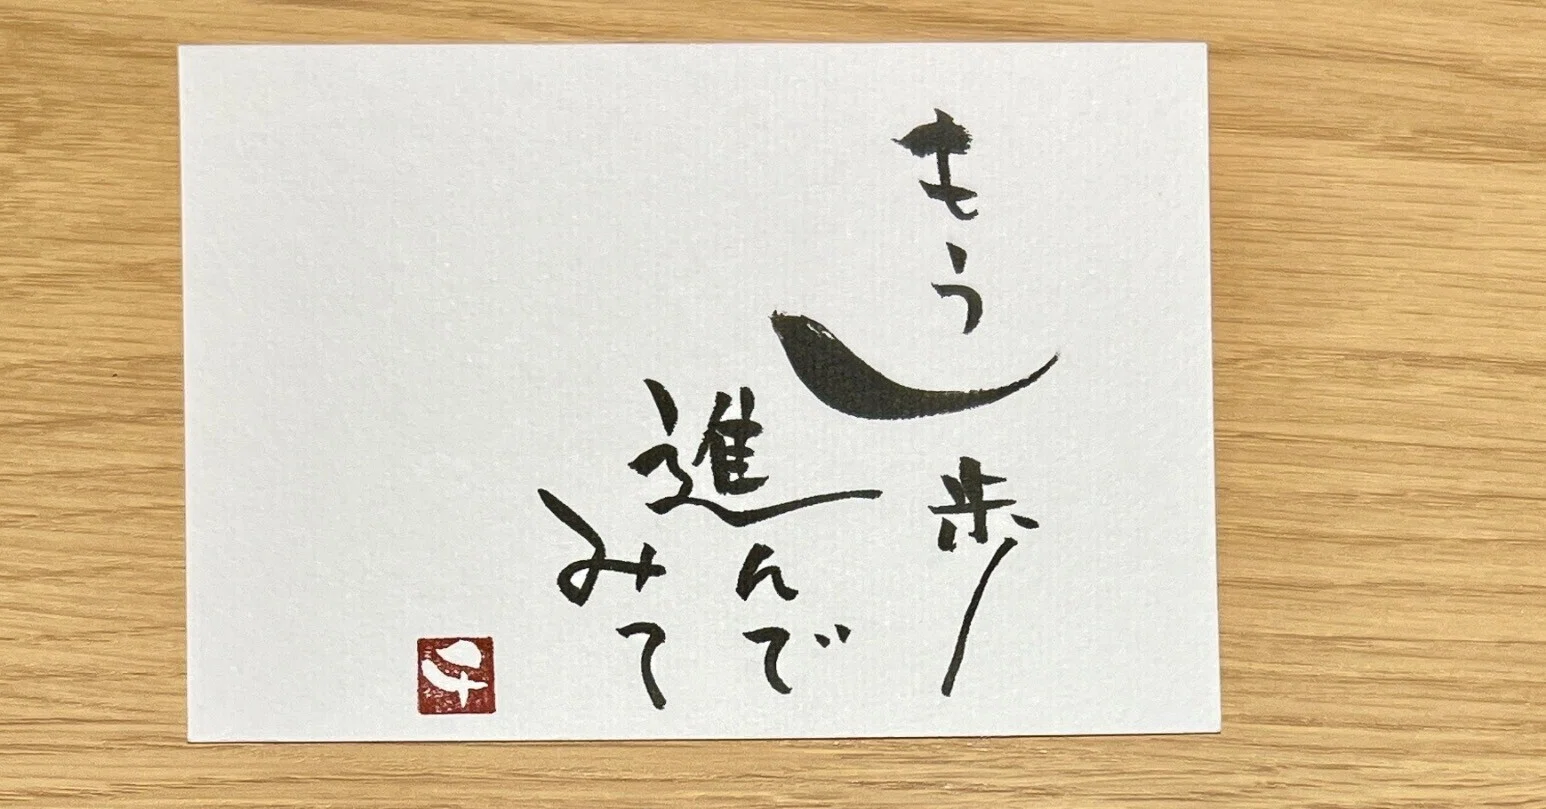 もう一歩
進んで
みて